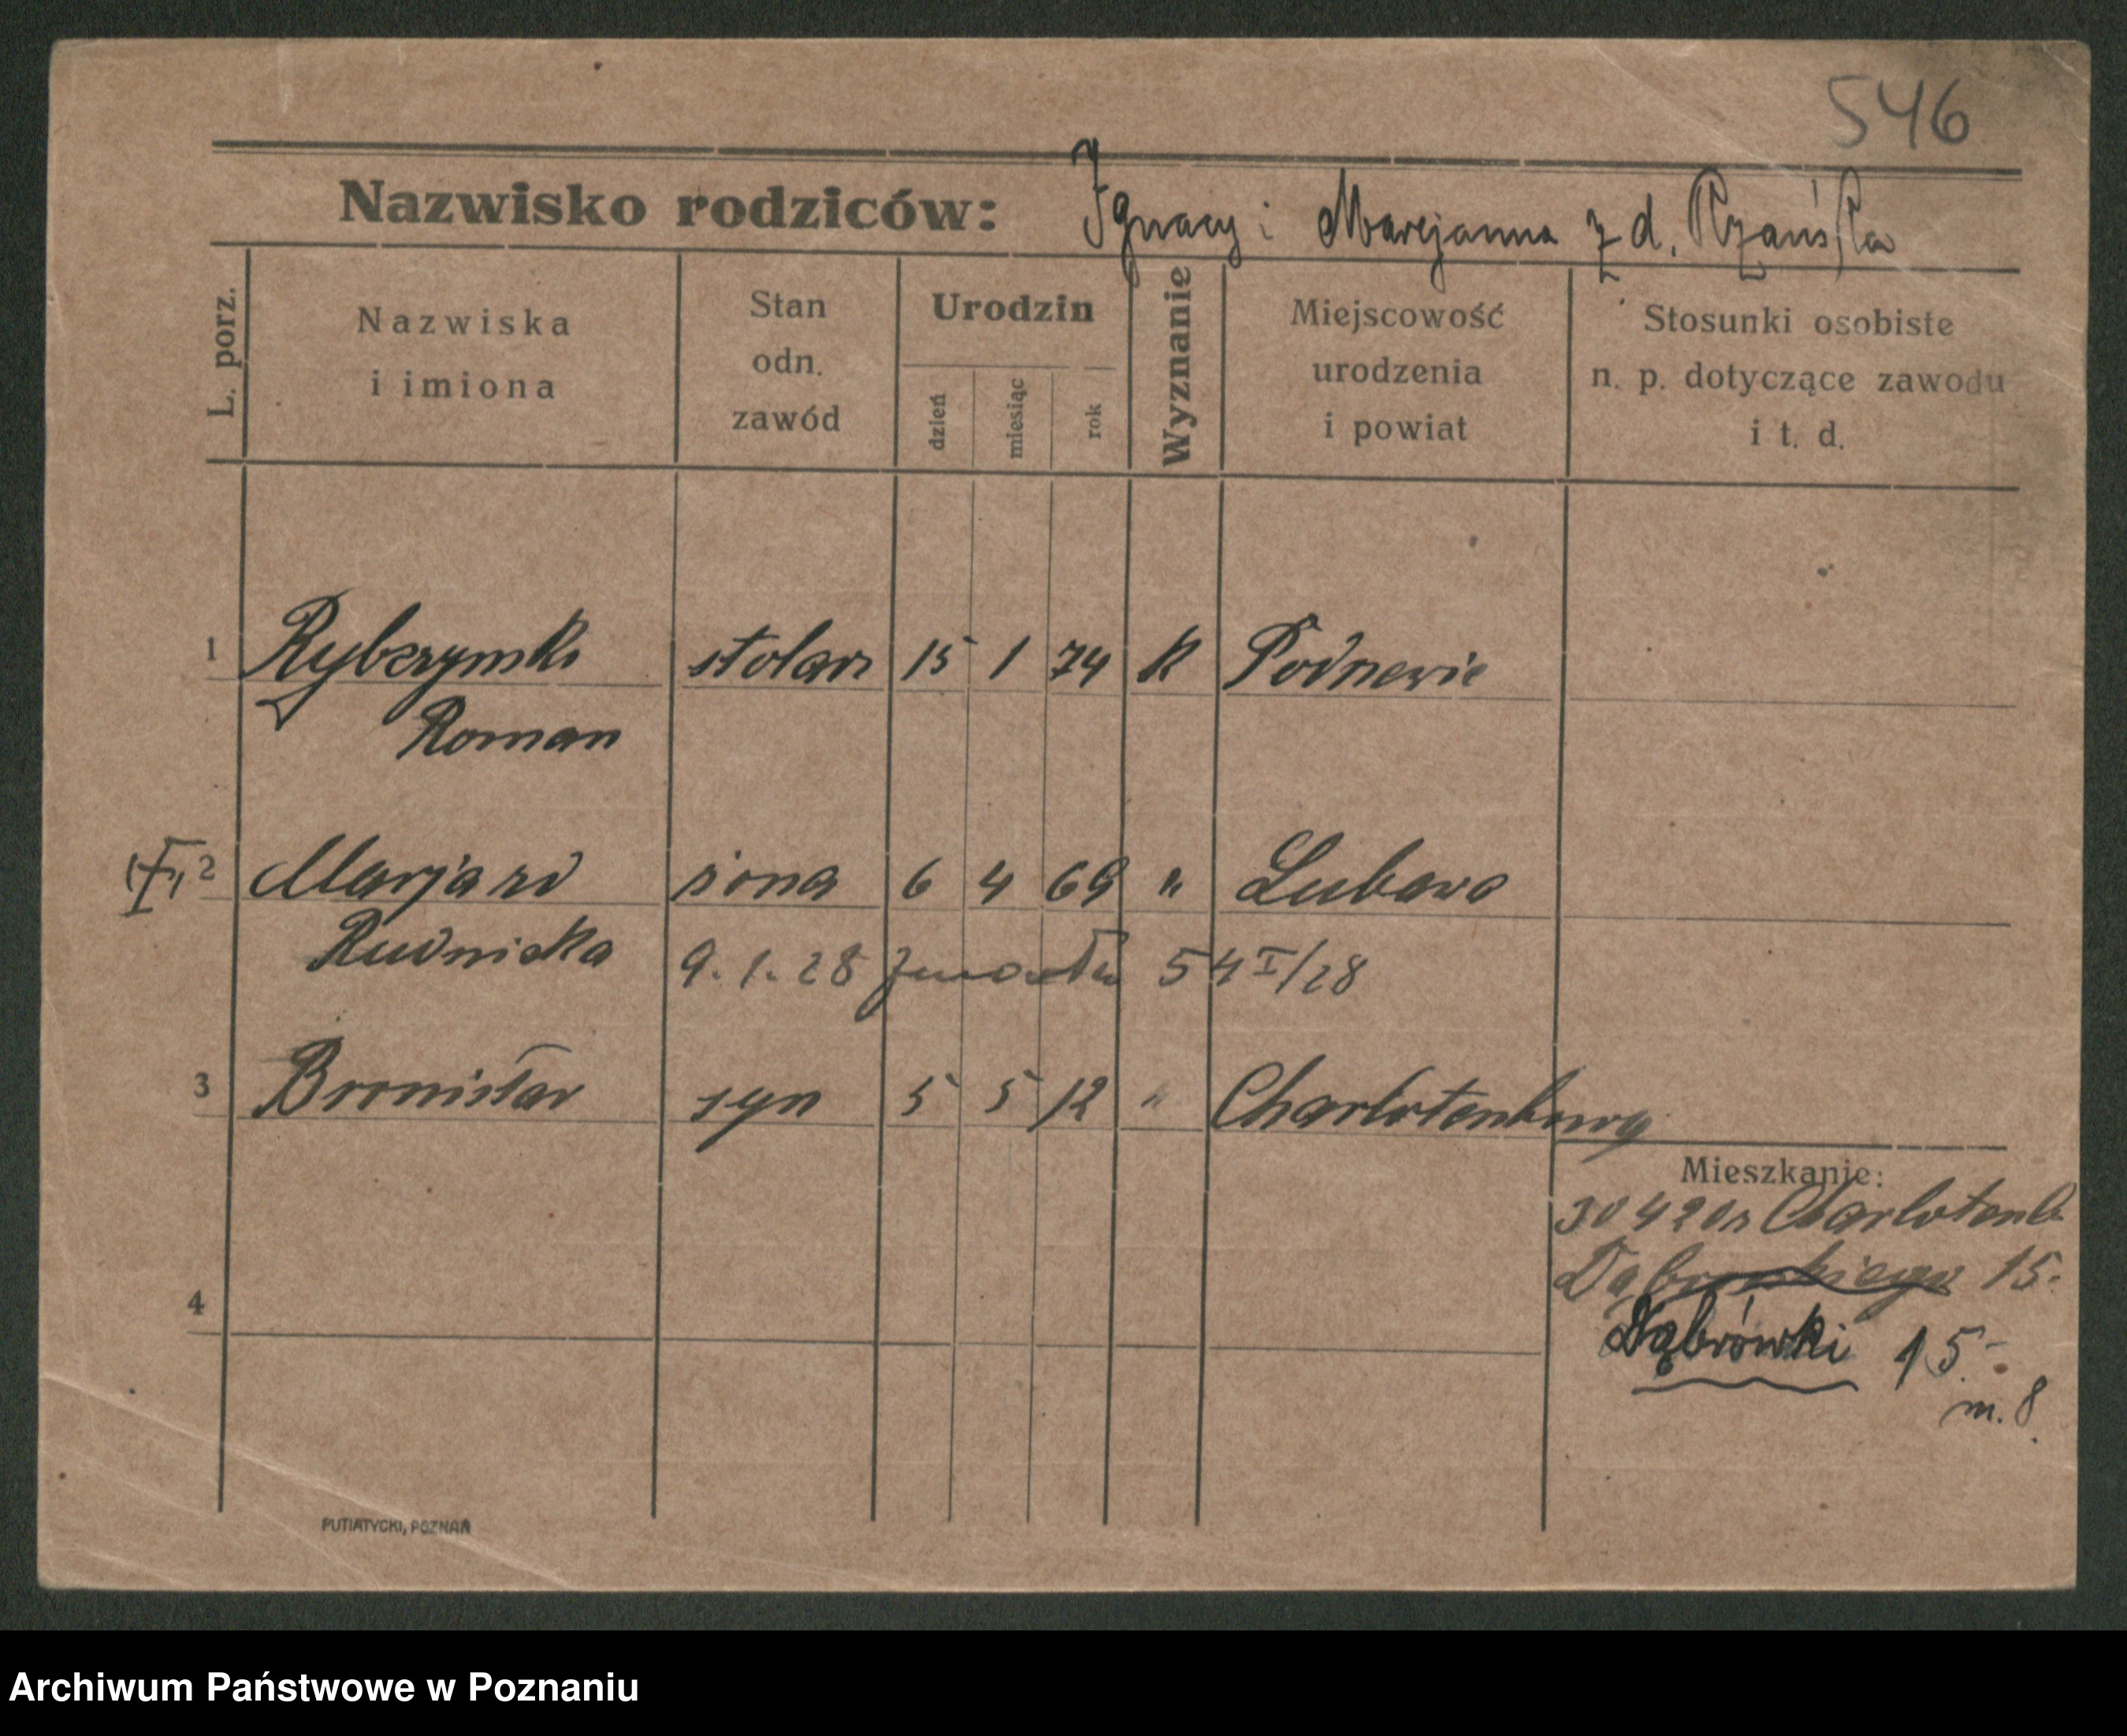 546
Nazwisko rodziców: Ignacy i Marejanna z d. Rzańska
L. porz.
Nazwiska
i imiona
Stan
odn.
zawód
Urodzin
dzień
miesiąc
rok
Wyznanie
Miejscowość
urodzenia
i powiat
Stosunki osobiste
n. p. dotyczące zawodu
i t. d.
1 Rybczynski stolarz 15 1 74 K
Roman
2 Marja zd żona 6 4 69 " Lubawa
Rudnicka 9.1.28 zmarła 54 I/28
3 Bronisław syn 5 5 12 " Charlotenburg
Mieszkanie:
30 4 20 z Charlotenb
Dąbrowskiego 15.
4
Dąbrówki 15
m. 8
PUTIATYCKI, POZNAŃ
Archiwum Państwowe w Poznaniu